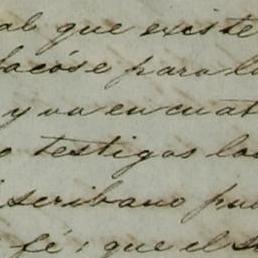 al que existe
sacóse para la
y va en cuat
o testigos los
scribano pu
fé; que el s